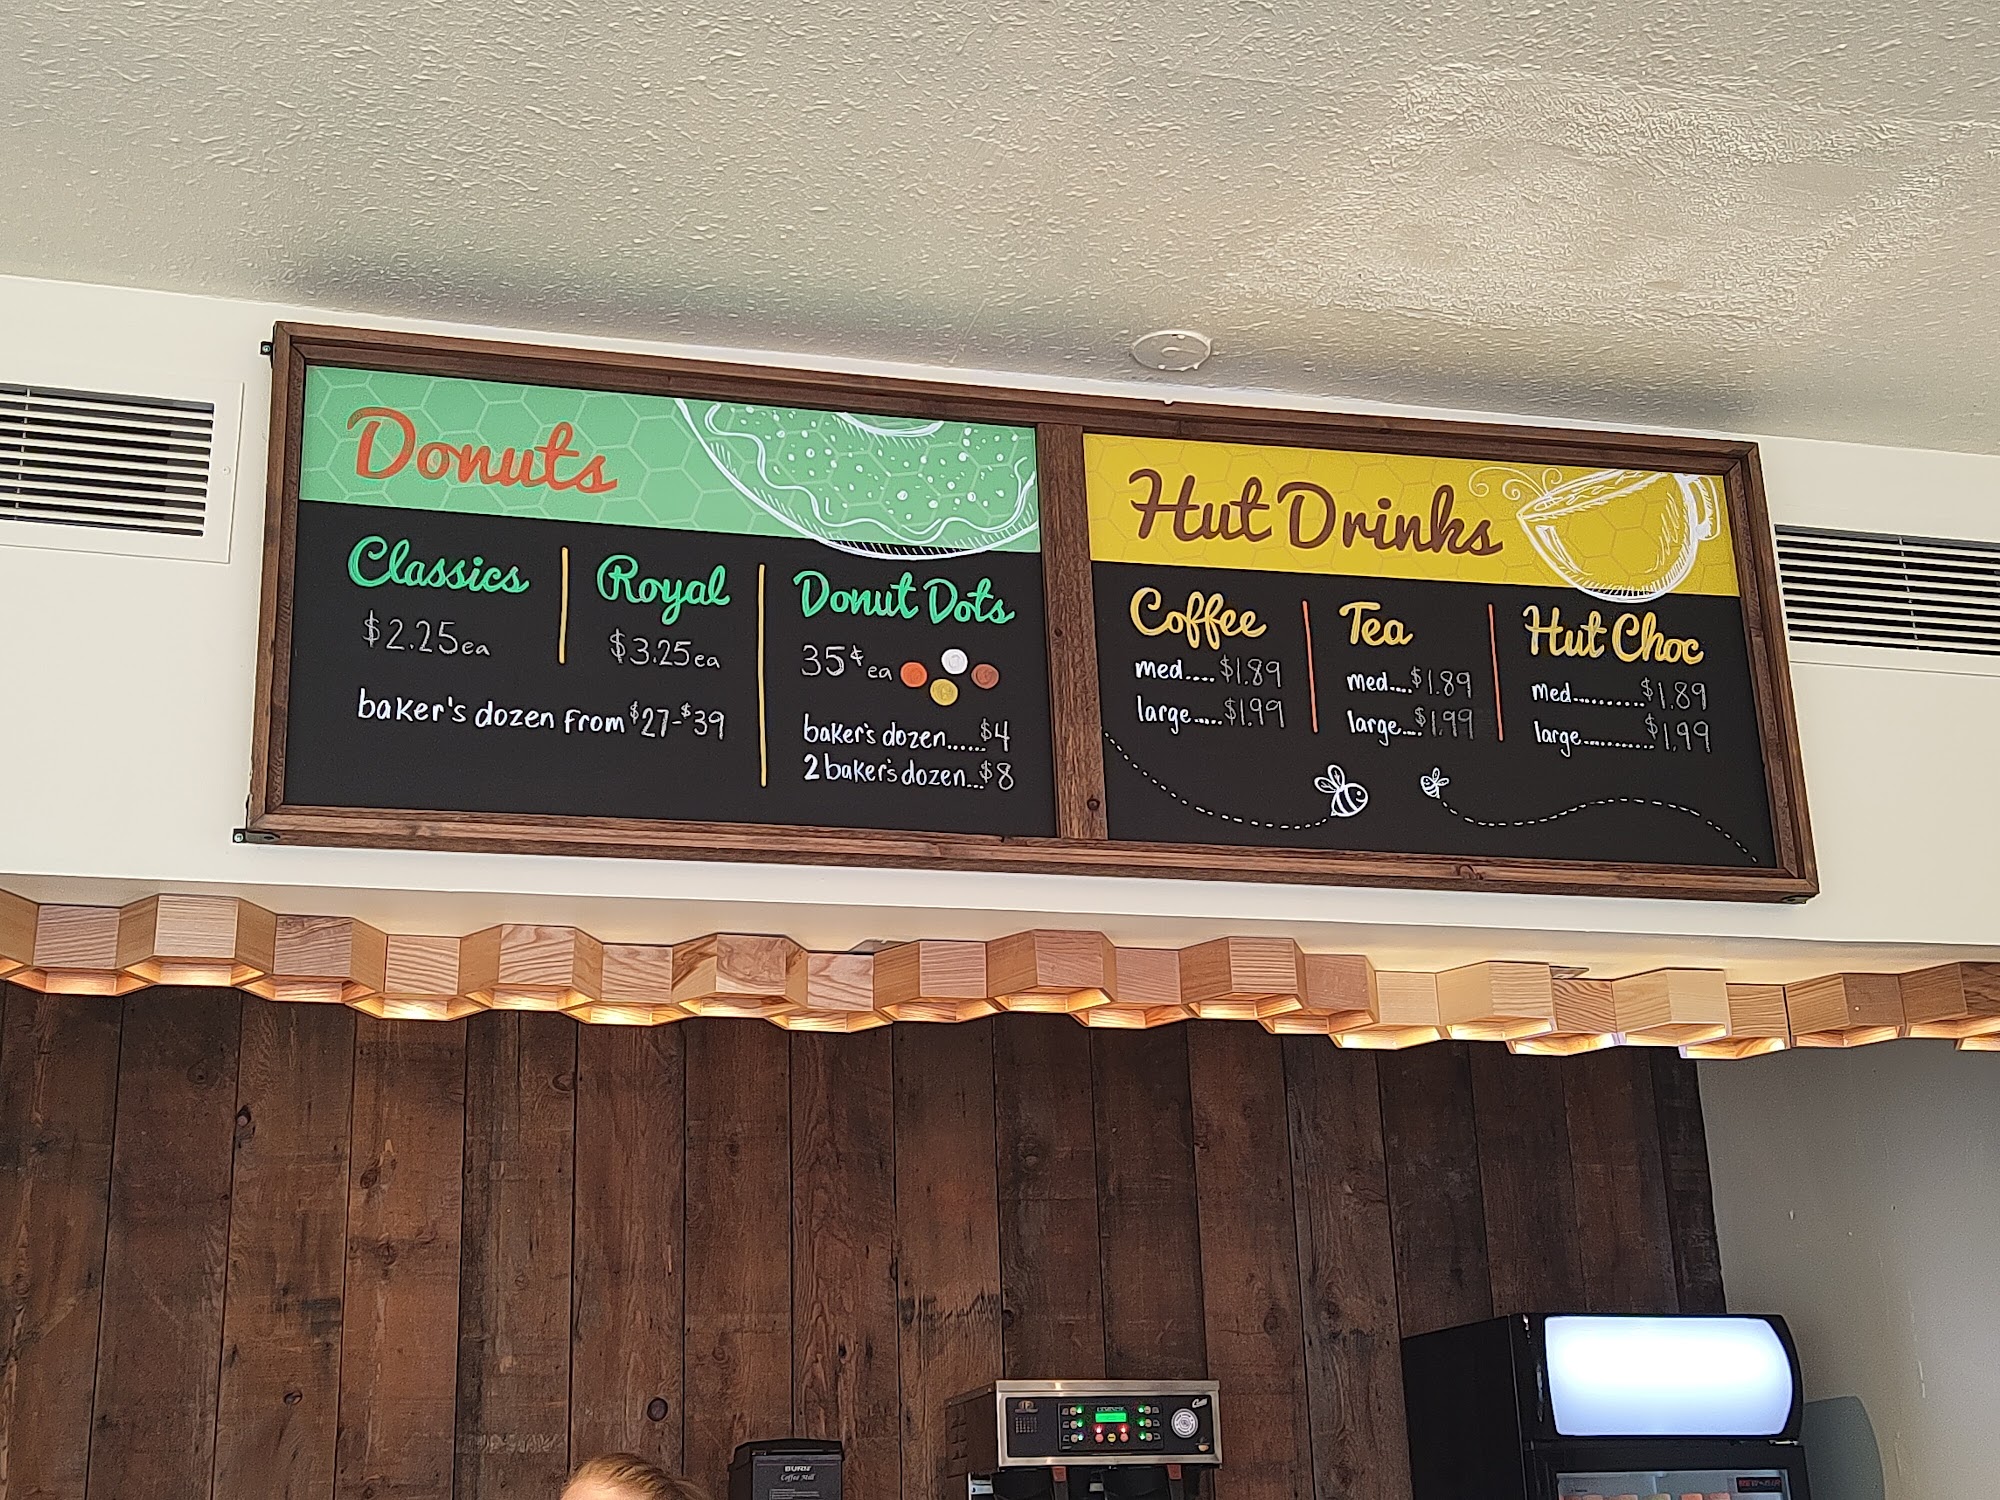 Donuts
Classics
$2.25ea
Royal
$3.25ea
baker's dozen from $27-$39
Donut Dots
35¢ ea
baker's dozen......$4
2 baker's dozen...$8
Hut Drinks
Coffee
med.... $1.89
large..... $1.99
Tea
med....$1.89
large....$1.99
Hut Choc
med..........$1.89
large..........$1.99
BUNN
Coffee Mill
Curtis